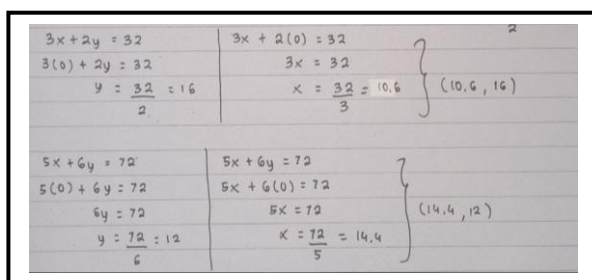 2
3x + 2y = 32
3(0) + 2y = 32
y = 32/2 = 16
3x + 2(0) = 32
3x = 32
x = 32/3 = 10,6
(10,6 , 16)
5x + 6y = 72
5(0) + 6y = 72
6y = 72
y = 72/6 = 12
5x + 6y = 72
5x + 6(0) = 72
5x = 72
x = 72/5 = 14,4
(14,4 , 12)